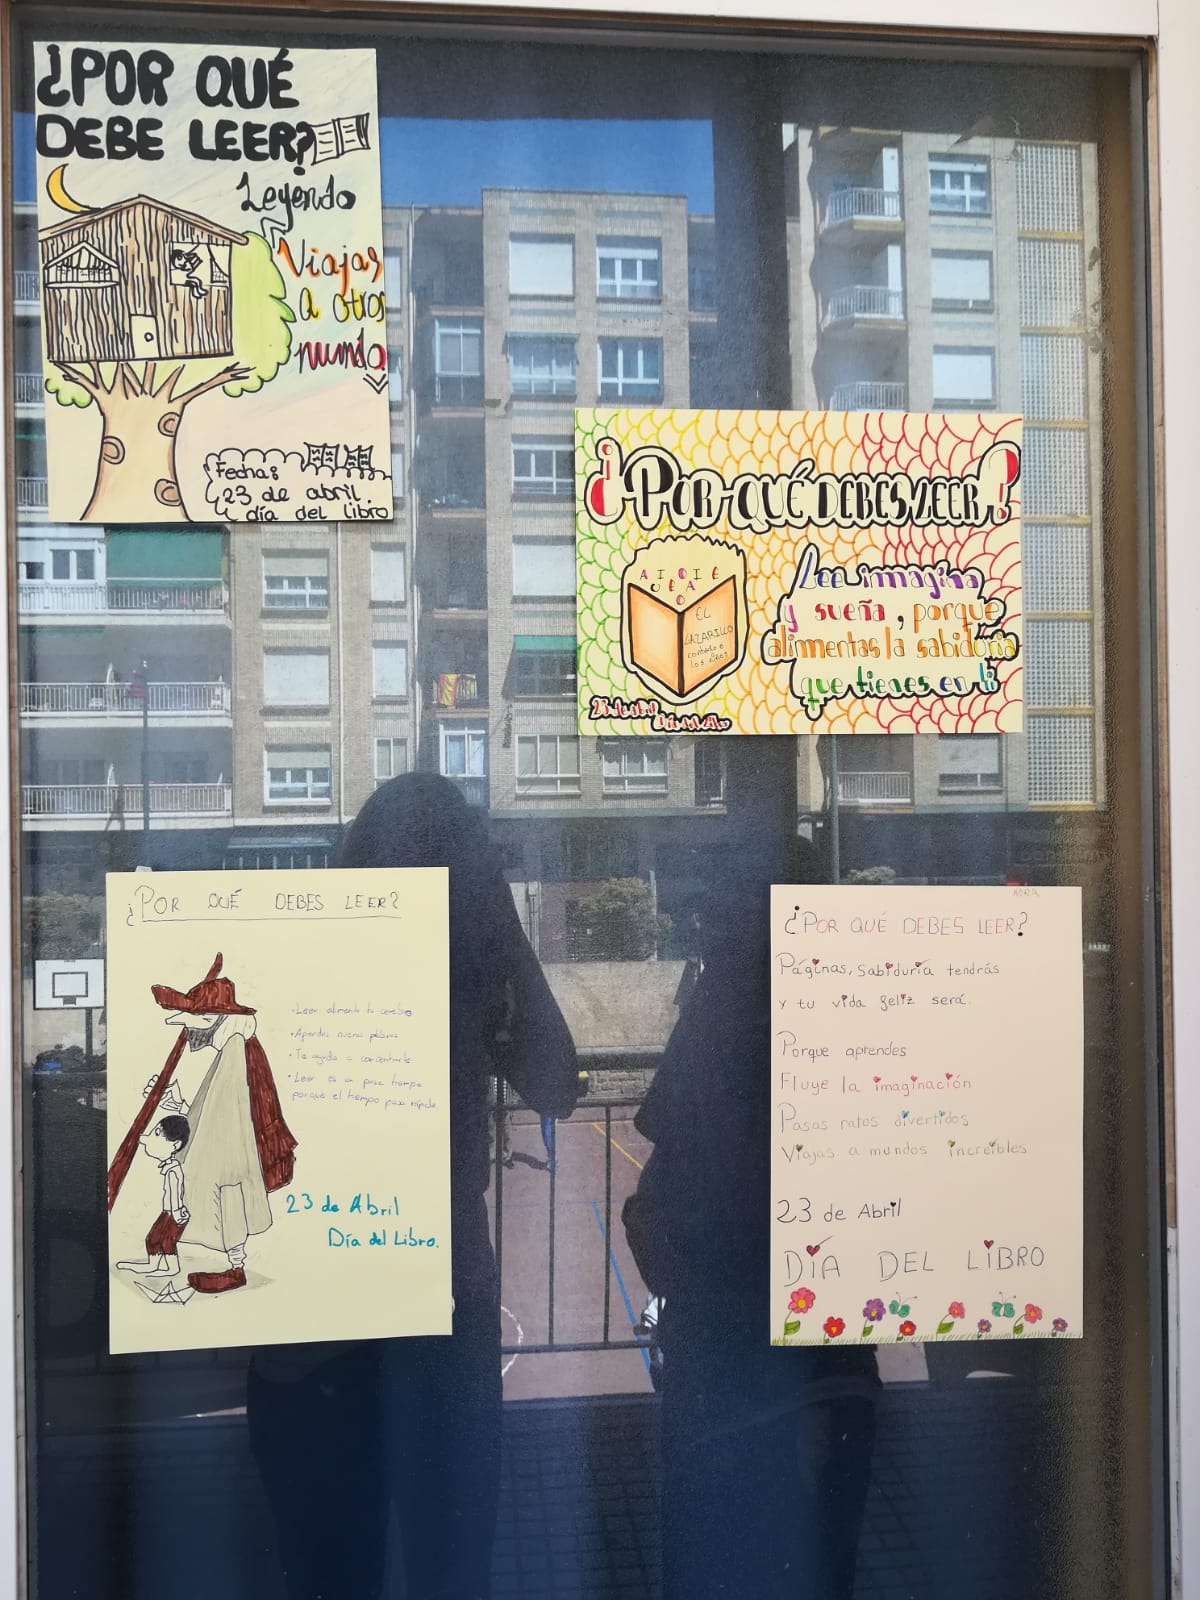 ¿POR QUÉ
DEBE LEER?
Leyendo
Viajas
a otros
mundo
Fecha:
23 de abril.
día del libro
¡POR QUÉ DEBES LEER!
A I O I E
U E A
O
EL
LAZARILLO
contado a
los niños
Lee imagina
y sueña, porque
alimentas la sabiduria
que tienes en ti
23 de abril
Día del Libro
¿POR QUÉ DEBES LEER?
·Leer alimenta tu cerebro
·Aprendes nuevas palabras
·Te ayuda a concentrarte
·Leer es un pasa tiempo
porque el tiempo pasa rápido.
23 de Abril
Día del Libro.
NORA
¿POR QUÉ DEBES LEER?
Páginas, Sabiduría tendrás
y tu vida feliz será.
Porque aprendes
Fluye la imaginación
Pasas ratos divertidos
Viajas a mundos increíbles
23 de Abril
DÍA DEL LIBRO